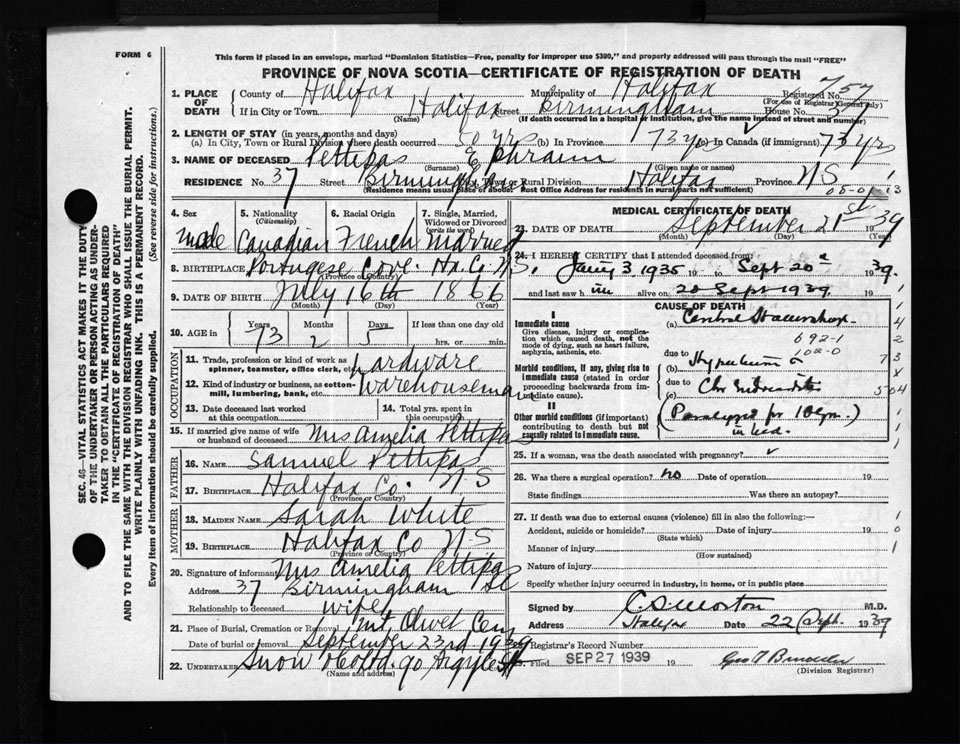 FORM 6
This form if placed in an envelope, marked "Dominion Statistics—Free, penalty for improper use $300," and properly addressed will pass through the mail "FREE"
PROVINCE OF NOVA SCOTIA—CERTIFICATE OF REGISTRATION OF DEATH
SEC. 46—VITAL STATISTICS ACT MAKES IT THE DUTY
OF THE UNDERTAKER OR PERSON ACTING AS UNDER-
TAKER TO OBTAIN ALL THE PARTICULARS REQUIRED
IN THE "CERTIFICATE OF REGISTRATION OF DEATH"
AND TO FILE THE SAME WITH THE DIVISION REGISTRAR WHO SHALL ISSUE THE BURIAL PERMIT.
WRITE PLAINLY WITH UNFADING INK. THIS IS A PERMANENT RECORD.
Every item of information should be carefully supplied. (See reverse side for instructions.)
1. PLACE OF DEATH County of Halifax Municipality of Halifax Registered No. 757
(For use of Registrar General only)
If in City or Town Halifax Street Birmingham House No. 37
(Name) (If death occurred in a hospital or institution, give the name instead of street and number)
2. LENGTH OF STAY (in years, months and days)
(a) In City, Town or Rural Division where death occurred 50 yrs (b) In Province 73 yrs (c) In Canada (if immigrant) 73 yrs
3. NAME OF DECEASED Pettipas Ephraim
(Surname) (Given name or names)
RESIDENCE No. 37 Street Birmingham City, Town or Rural Division Halifax Province N S
(Residence means usual place of abode. Post Office Address for residents in rural parts not sufficient)
4. Sex Male
5. Nationality (Citizenship) Canadian
6. Racial Origin French
7. Single, Married, Widowed or Divorced (write the word) Married
8. BIRTHPLACE Portugese Cove Hx. Co N.S.
(Province or Country)
9. DATE OF BIRTH July 16th 1866
(Month) (Day) (Year)
10. AGE in Years 73 Months 2 Days 5 If less than one day old hrs. or min.
OCCUPATION
11. Trade, profession or kind of work as spinner, teamster, office clerk, etc. hardware
12. Kind of industry or business, as cotton-mill, lumbering, bank, etc. Warehouseman
13. Date deceased last worked at this occupation
14. Total yrs. spent in this occupation
15. If married give name of wife or husband of deceased Mrs Amelia Pettipas
FATHER
16. NAME Samuel Pettipas
17. BIRTHPLACE Halifax Co. N.S
(Province or Country)
MOTHER
18. MAIDEN NAME Sarah White
19. BIRTHPLACE Halifax Co N.S
(Province or Country)
20. Signature of informant Mrs Amelia Pettipas
Address 37 Birmingham St
Relationship to deceased wife
21. Place of Burial, Cremation or Removal Mt Olivet Cem
Date of burial or removal September 23rd 1939
22. UNDERTAKER Snow 90 Argyle St
(Name and address)
MEDICAL CERTIFICATE OF DEATH
23. DATE OF DEATH September 21st 1939
(Month) (Day) (Year)
24. I HEREBY CERTIFY that I attended deceased from
Jany 3 1935 to Sept 20th 1939
and last saw him alive on 20 Sept 1939 19
CAUSE OF DEATH
I
Immediate cause
Give disease, injury or complication which caused death, not the mode of dying, such as heart failure, asphyxia, asthenia, etc.
(a)
692-1
102-0
due to
(b)
Morbid conditions, if any, giving rise to immediate cause (stated in order proceeding backwards from immediate cause).
due to
(c)
II
Other morbid conditions (if important) contributing to death but not causally related to immediate cause.
25. If a woman, was the death associated with pregnancy?
26. Was there a surgical operation? no Date of operation 19
State findings Was there an autopsy?
27. If death was due to external causes (violence) fill in also the following:—
Accident, suicide or homicide? Date of injury 19
(State which)
Manner of injury
(How sustained)
Nature of injury
Specify whether injury occurred in industry, in home, or in public place
Signed by C. S. Morton M.D.
Address Halifax Date 22 Sept. 1939
28. Registrar's Record Number
29. Filed SEP 27 1939 19
(Division Registrar)